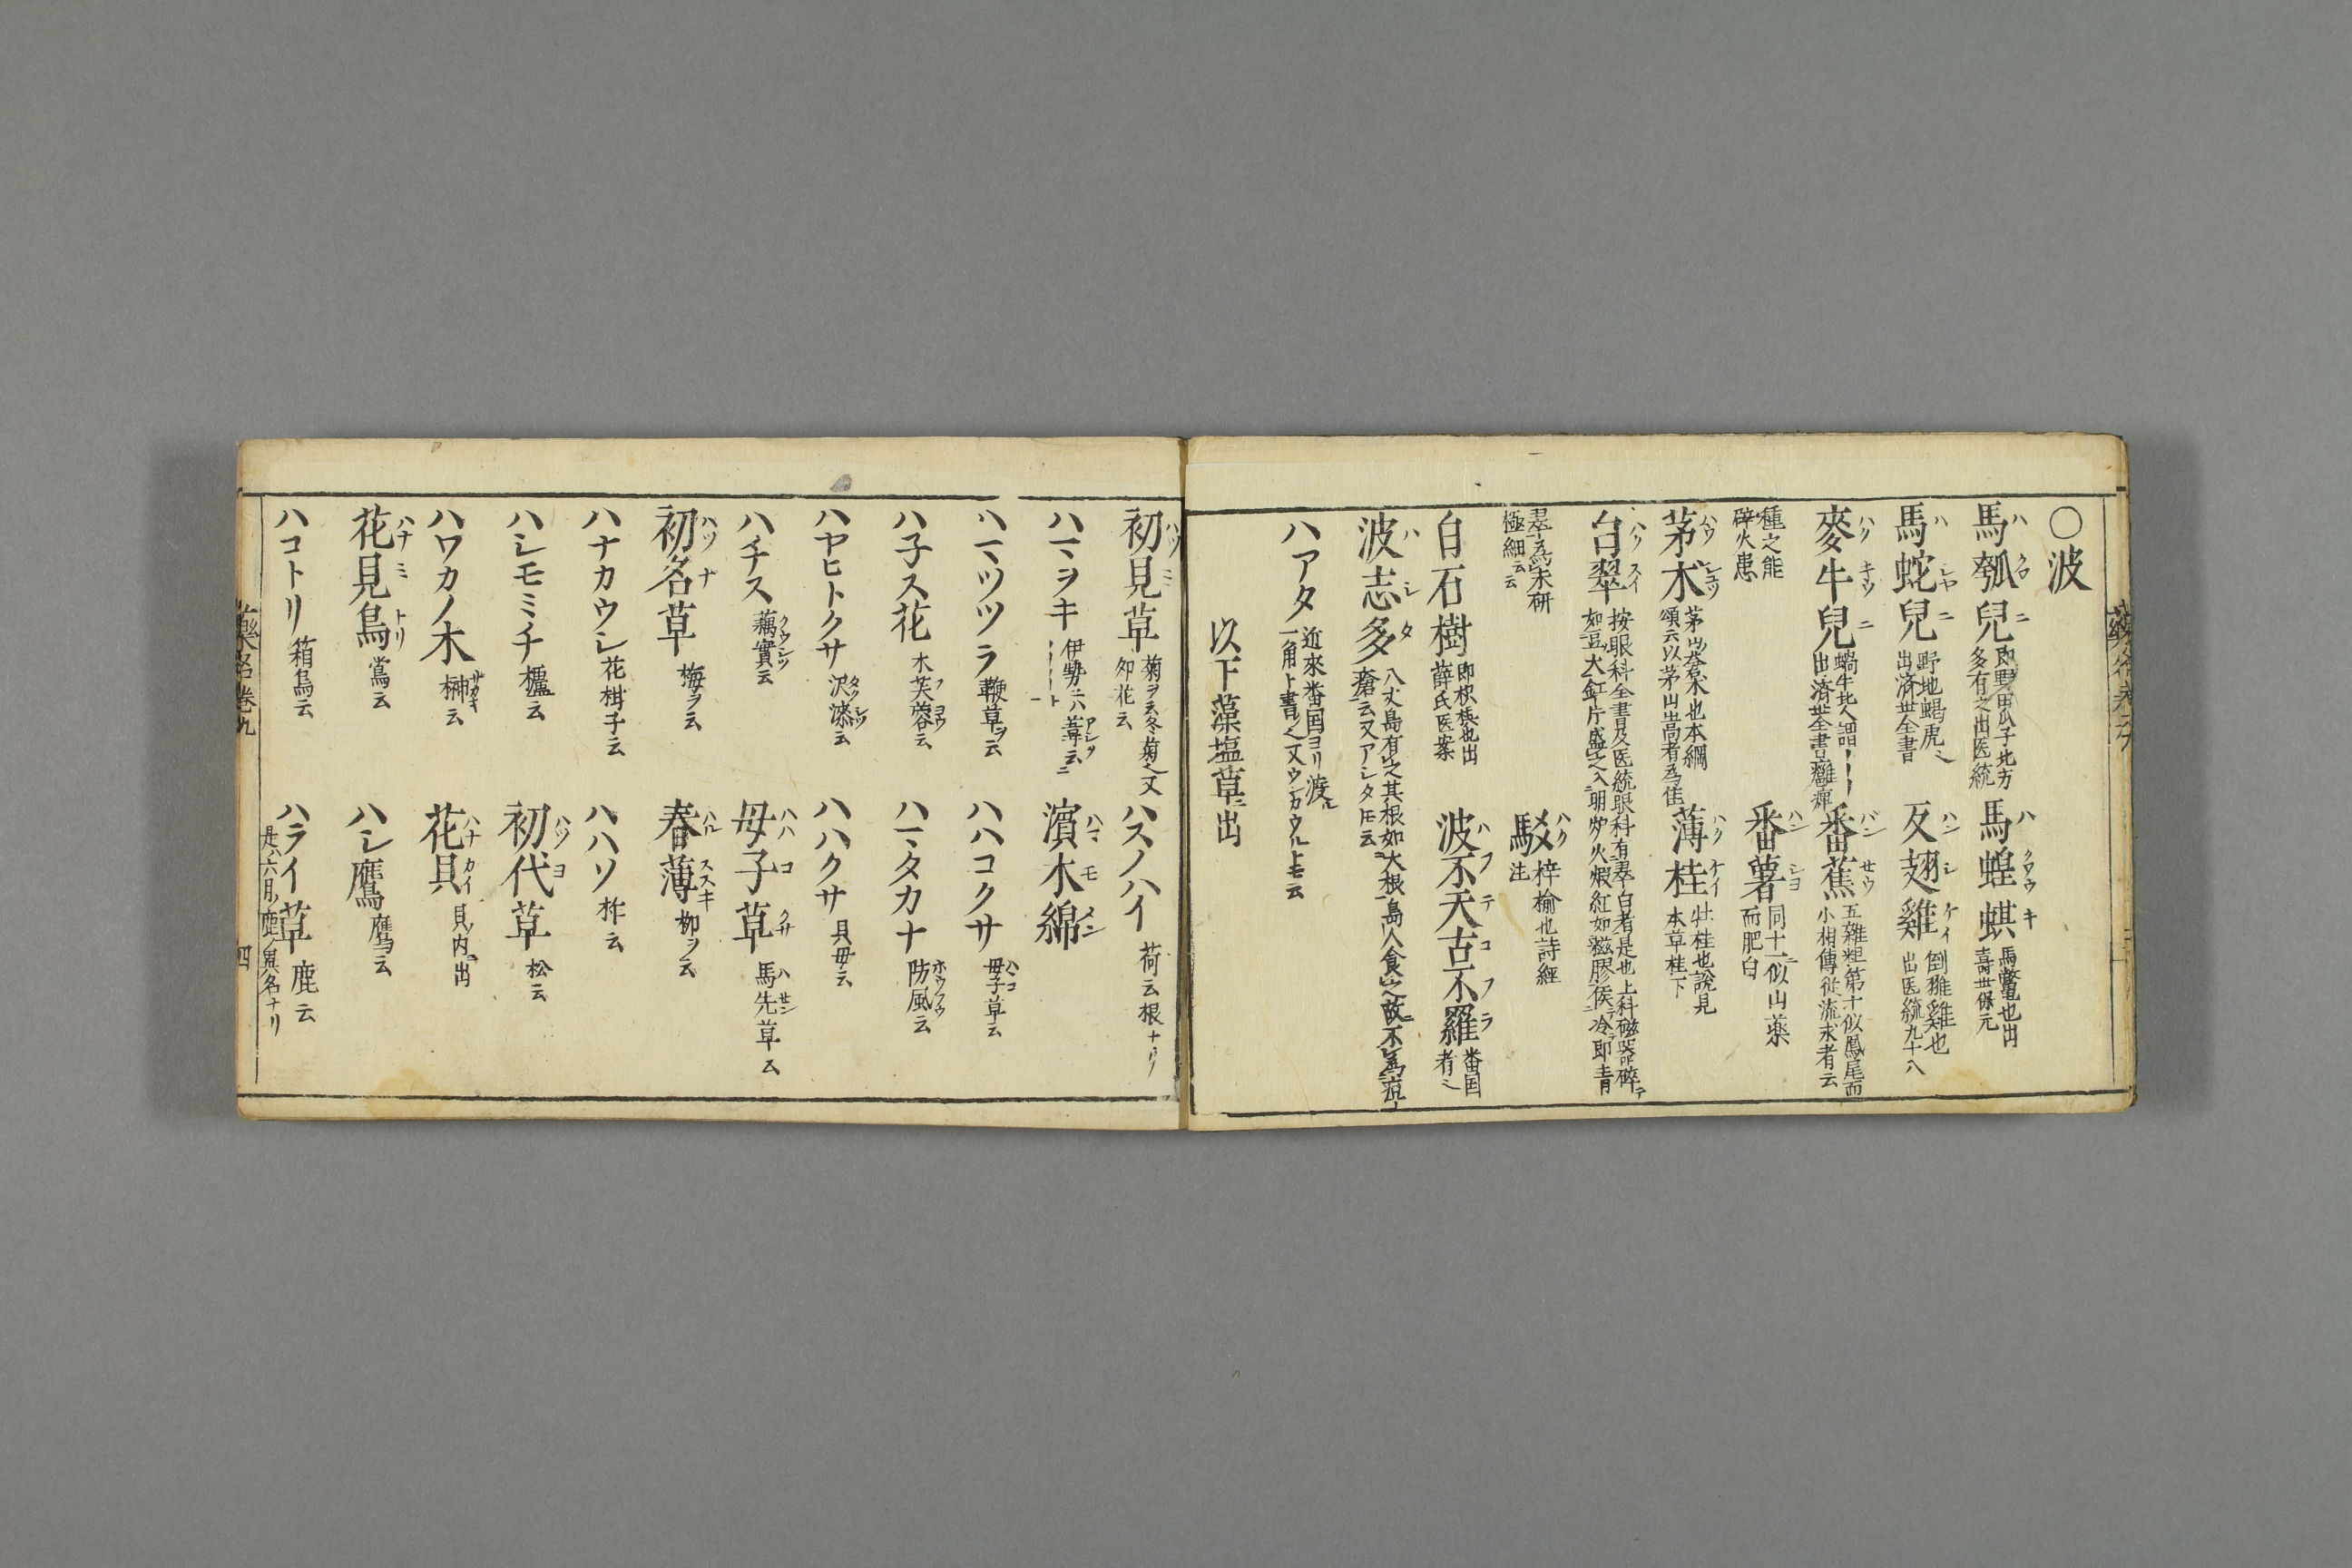 〇波
馬瓠兒 即野田瓜子北方多有之出医統
馬蝗蜞 馬鼈也出壽世保元
馬蛇兒 野地蝎虎也出済世全書
反翅雞 倒雞雞也出医統九十八
麥牛兒 蝸牛北人謂出済世全書
番蕉 五雜粗第十似鳳尾而小相傳従流求者云
種之能辟火患
番薯 同十一ニ似山藥而肥白
茅朮 茅山蒼朮也本綱頌云以茅山嵩者為佳
薄桂 牡桂也說見本草桂下
白翠 按眼科全書及医統眼科有翠白者是也上科磁器碎テ如豆大釭片盛之入明炉火煅紅如糍膠侯冷即青
翠為末研極細云云
駁 梓榆也詩經注
白石樹 即枳椇也出薛氏医案
波不天古不羅 番国者也
波志多 八丈島有之其根如大根島人食之故不患痘瘡云又アシタトモ云
ハアタ 近來番国ヨリ渡ル一角ト書之又ウンカウルトモ云
以下藻塩草ニ出
初見草 菊ヲ云冬菊也又卯花云
ハスノハイ 荷云根ナリ
ハマヲキ 伊勢ニハ葦云ニ
濱木綿
ハマツツラ 鞕草ヲ云
ハハコクサ 母子草云
ハ子ス花 木芙蓉云
ハマタカナ 防風云
ハヤヒトクサ 沢漆云
ハハクサ 貝母云
ハチス 藕實云
母子草 馬先草云
初名草 梅ヲ云
春薄 柳ヲ云
ハナカウシ 花柑子云
ハハソ 柞云
ハシモミチ 櫨云
初代草 松云
ハワカノ木 榊云
花貝 貝ノ内ニ出
花見鳥 鴬云
ハシ鷹 鷹ヲ云
ハコトリ 箱鳥云
ハライ草 鹿云
是ハ六月ノ鹿ノ異名ナリ
藥名巻九
四